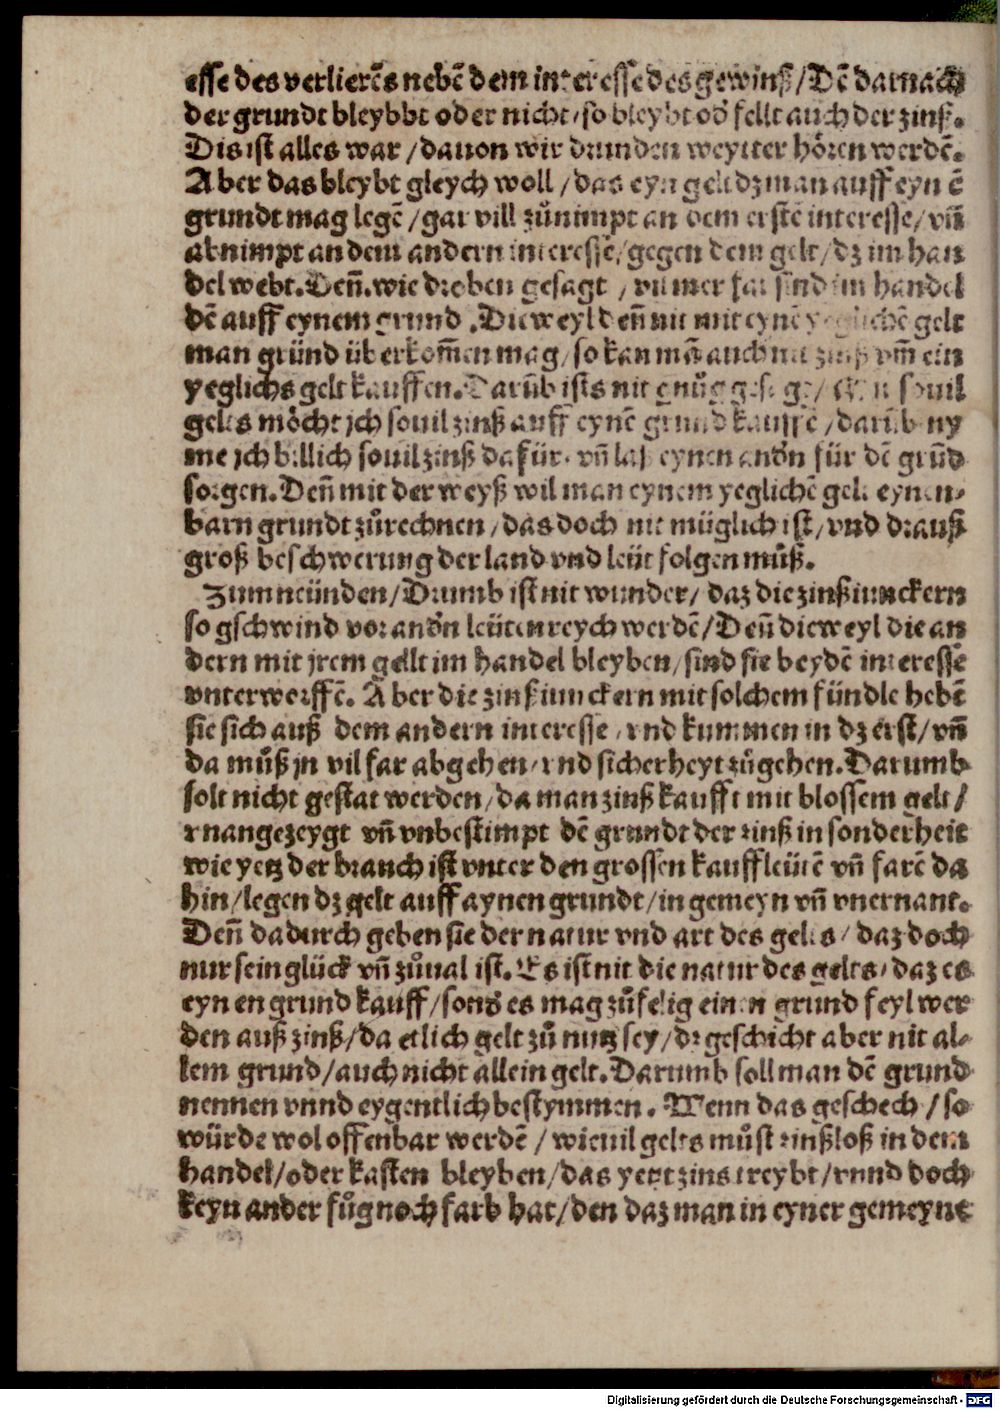 esse des verlierēs nebē dem interesse des gewinß/Dē darnach
der grundt bleybbt oder nicht/so bleybt od̕ fellt auch der zinß.
Dis ist alles war/dauon wir drunden weytter hören werdē.
Aber das bleybt gleych woll/das eyn gelt dz man auff eynē
grundt mag legē/gar vill zůnimpt an dem erstē interesse/vñ
abnimpt an dem andern interesse/gegen dem gelt/dz im han
del webt. Deñ.wie droben gesagt/vil mer far sind im handel
dē auff eynem grund.Dieweyl deñ nit mit eynē yeglichē gelt
man gründ überkom̄en mag/so kan mā auch nit zinß vm̄ ein
yeglichs gelt kauffen.Darūb ists nit gnůg gesagt/Mit souil
gelts möcht jch souil zinß auff eynē grund kauffē/darūb ny
me jch billich souil zinß dafür.vñ laß eynen and̕n für dē grūd
sorgen.Deñ mit der weyß wil man eynem yeglichē gelt eynen-
barn grundt zůrechnen/das doch nit müglich ist/vnd drauß
groß beschwerung der land vnd leüt folgen můß.
Zum neünden/Drumb ist nit wunder/daz die zinßiunckern
so gschwind vor and̕n leüten reych werdē/Deñ dieweyl die an
dern mit jrem gellt im handel bleyben/sind sie beydē interesse
vnterworffē. Aber die zinßiunckern mit solchem fündle hebē
sie sich auß dem andern interesse/vnd kummen in dz erst/vñ
da můß jn vil far abgehen/vnd sicherheyt zůgehen.Darumb
solt nicht gestat werden/da man zinß kaufft mit blossem gelt/
vnangezeygt vñ vnbestimpt dē grundt der zinß in sonderheit
wie yetz der brauch ist vnter den grossen kauffleütē vñ farē da
hin/legen dz gelt auff aynen grundt/in gemeyn vñ vnernant.
Deñ dadurch geben sie der natur vnd art des gelts/daz doch
nur sein glück vñ zůual ist.Es ist nit die natur des gelts/daz es
eynen grund kauff/sond̕ es mag zůfelig einen grund feyl wer
den auß zinß/da etlich gelt zů nutz sey/dz geschicht aber nit al-
lem grund/auch nicht allein gelt.Darumb soll man dē grund
nennen vnnd eygentlich bestymmen. Wenn das geschech/so
würde wol offenbar werdē/wieuil gelts můst zinßloß in dem
handel/oder kasten bleyben/das yetzt zins treybt/vnnd doch
keyn ander fůg noch farb hat/den daz man in eyner gemeyne
Digitalisierung gefördert durch die Deutsche Forschungsgemeinschaft - DFG